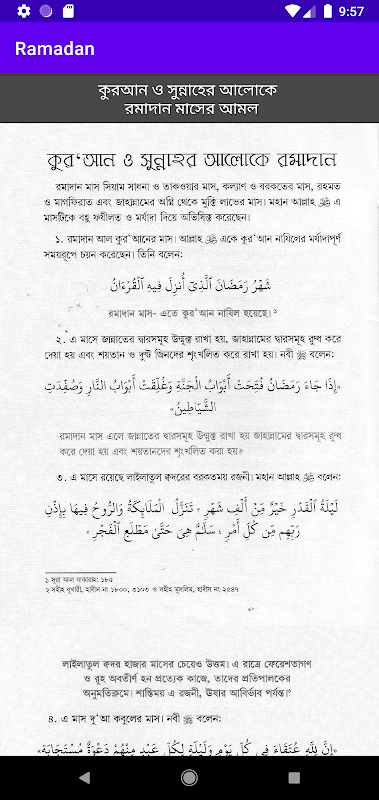 9:57
Ramadan
কুরআন ও সুন্নাহের আলোকে
রমাদান মাসের আমল
কুর'আন ও সুন্নাহের আলোকে রমাদান
রমাদান মাস সিয়াম সাধনা ও তাকওয়ার মাস, কল্যাণ ও বরকতের মাস, রহমত
ও মাগফিরাত এবং জাহান্নামের অগ্নি থেকে মুক্তি লাভের মাস। মহান আল্লাহ ﷻ এ
মাসটিকে বহু ফযীলত ও মর্যাদা দিয়ে অভিষিক্ত করেছেন।
১. রমাদান আল কুর'আনের মাস। আল্লাহ ﷻ একে কুর'আন নাযিলের মর্যাদাপূর্ণ
সময়রূপে চয়ন করেছেন। তিনি বলেন:
شَهْرُ رَمَضَانَ ٱلَّذِىٓ أُنزِلَ فِيهِ ٱلْقُرْءَانُ
রমাদান মাস- এতে কুর'আন নাযিল হয়েছে।১
২. এ মাসে জান্নাতের দ্বারসমূহ উন্মুক্ত রাখা হয়, জাহান্নামের দ্বারসমূহ রুদ্ধ করে
দেয়া হয় এবং শয়তান ও দুষ্ট জিনদের শৃংখলিত করে রাখা হয়। নবী ﷺ বলেন:
«إِذَا جَاءَ رَمَضَانُ فُتِحَتْ أَبْوَابُ الْجَنَّةِ وَغُلِّقَتْ أَبْوَابُ النَّارِ وَصُفِّدَتِ
الشَّيَاطِينُ»
রমাদান মাস এলে জান্নাতের দ্বারসমূহ উন্মুক্ত রাখা হয় জাহান্নামের দ্বারসমূহ রুদ্ধ
করে দেয়া হয় এবং শয়তানদের শৃংখলিত করা হয়।২
৩. এ মাসে রয়েছে লাইলাতুল ক্বদরের বরকতময় রজনী। মহান আল্লাহ ﷻ বলেন:
لَيْلَةُ ٱلْقَدْرِ خَيْرٌ مِّنْ أَلْفِ شَهْرٍ ، تَنَزَّلُ ٱلْمَلَٰٓئِكَةُ وَٱلرُّوحُ فِيهَا بِإِذْنِ
رَبِّهِم مِّن كُلِّ أَمْرٍ ، سَلَٰمٌ هِىَ حَتَّىٰ مَطْلَعِ ٱلْفَجْرِ ،
১ সূরা আল বাকারাহ: ১৮৫
২ সহীহ বুখারী, হাদীস নং ১৮০০, ৩১০৩ ও সহীহ মুসলিম, হাদীস নং ২৫৪৭
লাইলাতুল ক্বদর হাজার মাসের চেয়েও উত্তম। এ রাত্রে ফেরেশতাগণ
ও রূহ অবতীর্ণ হন প্রত্যেক কাজে, তাদের প্রতিপালকের
অনুমতিক্রমে। শান্তিময় এ রজনী, ঊষার আবির্ভাব পর্যন্ত।১
৪. এ মাস দু'আ কবুলের মাস। নবী ﷺ বলেন:
«إِنَّ لِلَّهِ عُتَقَاءَ فِي كُلِّ يَوْمٍ وَلَيْلَةٍ لِكُلِّ عَبْدٍ مِنْهُمْ دَعْوَةٌ مُسْتَجَابَةٌ»